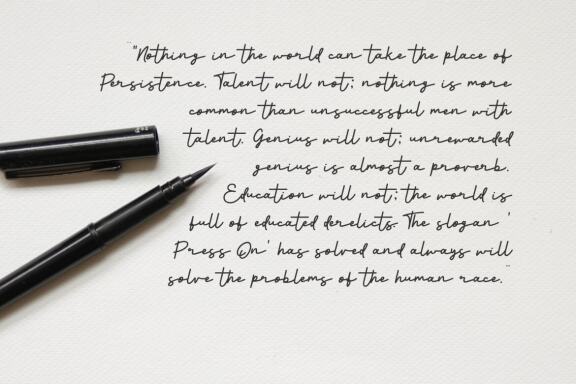 "Nothing in the world can take the place of
Persistence. Talent will not; nothing is more
common than unsuccessful men with
talent. Genius will not; unrewarded
genius is almost a proverb.
Education will not; the world is
full of educated derelicts. The slogan '
Press On' has solved and always will
solve the problems of the human race."